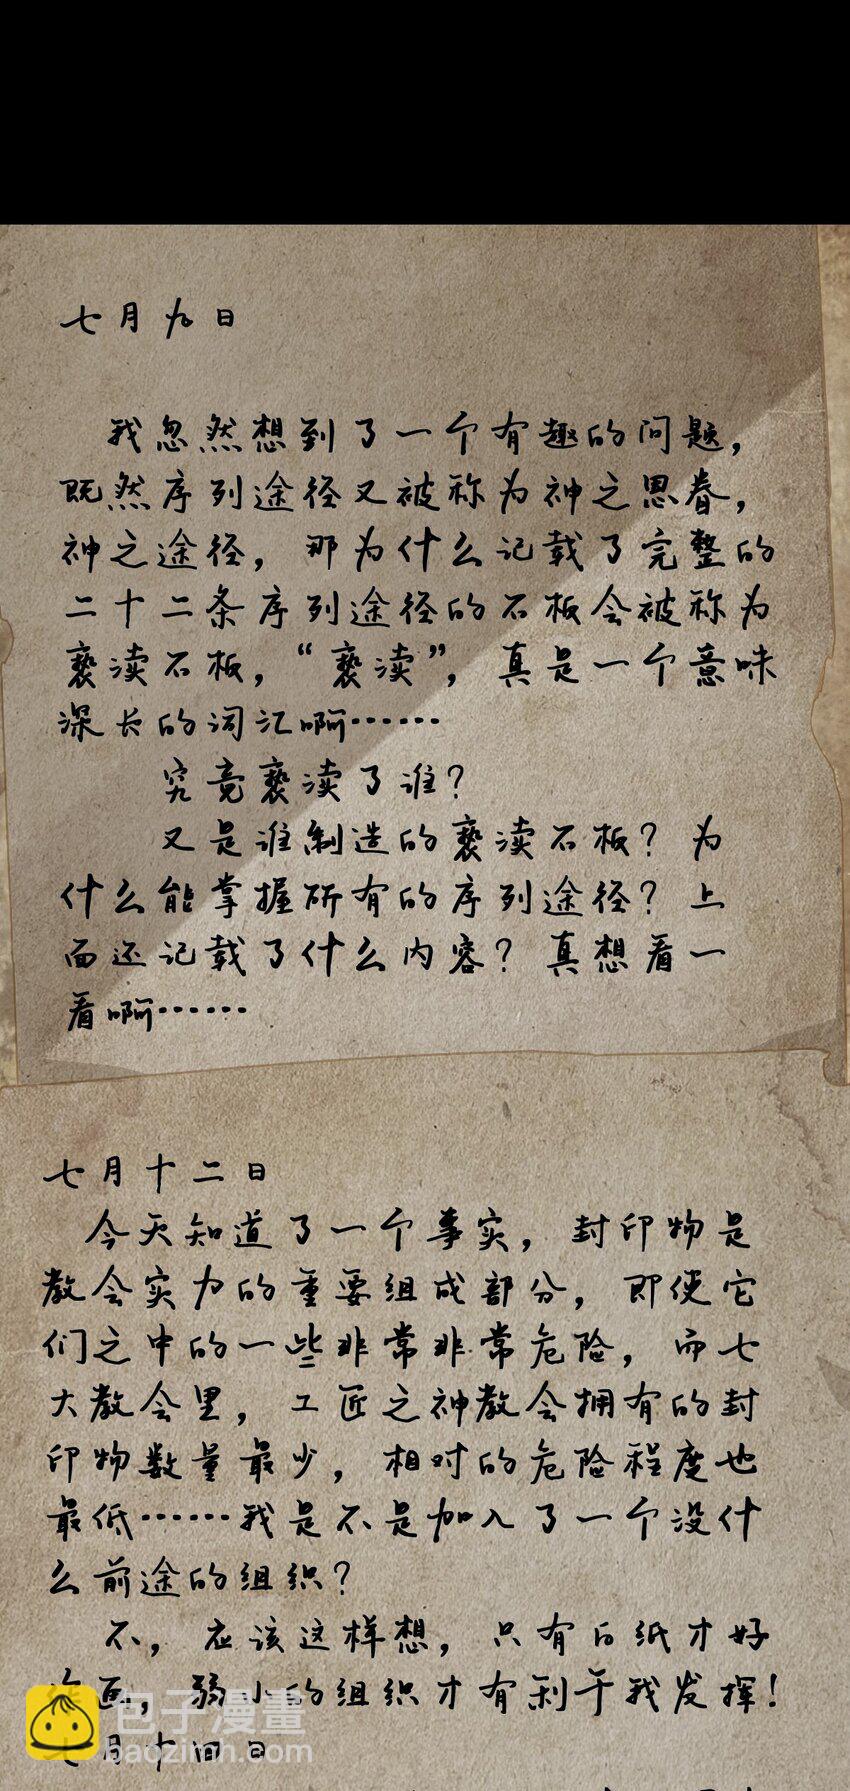 七月九日
我忽然想到了一个有趣的问题，
既然序列途径又被称为神之恩眷，
神之途径，那为什么记载了完整的
二十二条序列途径的石板会被称为
亵渎石板，“亵渎”，真是一个意味
深长的词汇啊……
究竟亵渎了谁？
又是谁制造的亵渎石板？为
什么能掌握所有的序列途径？上
面还记载了什么内容？真想看一
看啊……
七月十二日
今天知道了一个事实，封印物是
教会实力的重要组成部分，即使它
们之中的一些非常非常危险，而七
大教会里，工匠之神教会拥有的封
印物数量最少，相对的危险程度也
最低……我是不是加入了一个没什
么前途的组织？
不，应该这样想，只有白纸才好
画，弱小的组织才有利于我发挥！
七月十四日
包子漫畫
baozimh.com